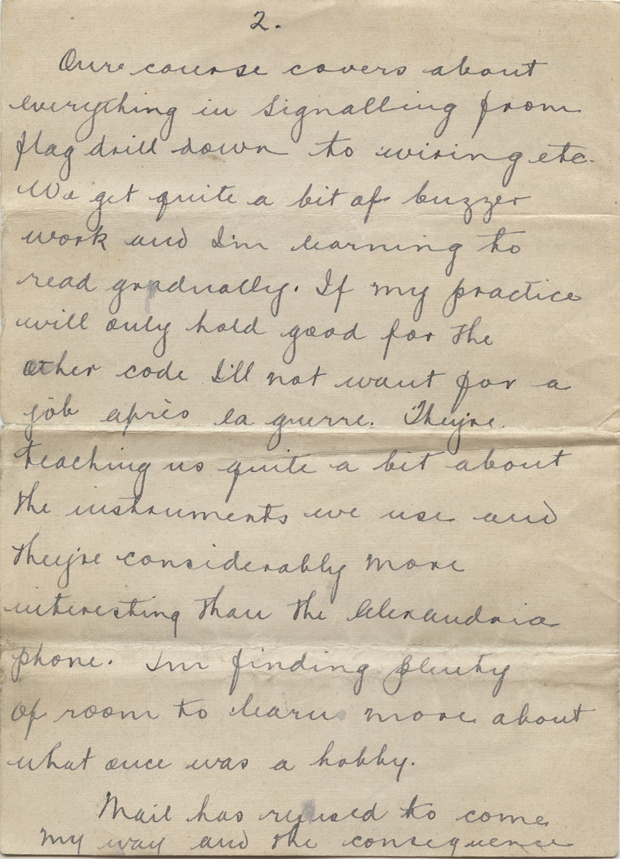 2.
Oure course covers about
everything in signalling from
flag drill down to wiring etc.
We get quite a bit of buzzer
work and I'm learning to
read gradually. If my practice
will only hold good for the
other code I'll not want for a
job après la guerre. They're
teaching us quite a bit about
the instruments we use and
they're considerably more
interesting than the Alexandria
phone. I'm finding plenty
of room to learn more about
what once was a hobby.
Mail has refused to come
my way and the consequence